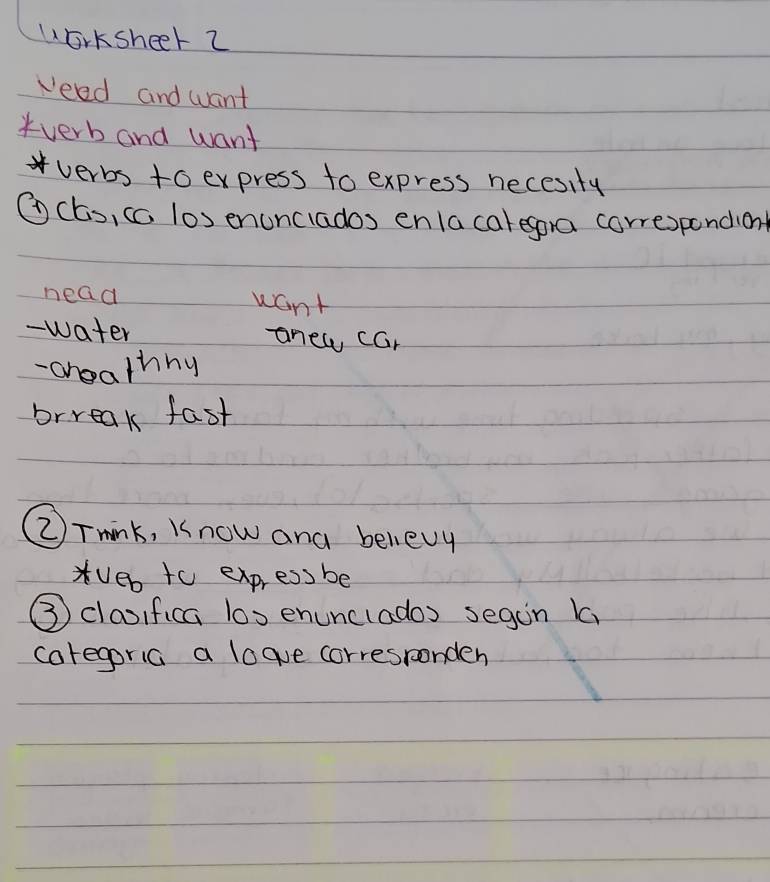 Worksheet 2
Need and want
*verb and want
*verbs to express to express necesity
① clasica los enunciados en la categora correspondient
nead want
-water -anew car
-ahealthny
brreak fast
② Think, know and believy
*veb to express be
③ clasifica los enunciados segün la
categoria a loque corresponden